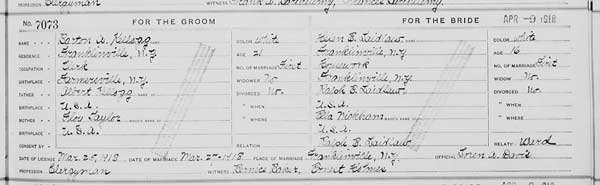 Clergyman WITNESS
No. 7073 FOR THE GROOM FOR THE BRIDE APR -9 1918
NAME Barton A. Kellogg COLOR White Helen E. Laidlaw COLOR White
RESIDENCE Franklinville, N.Y. AGE 21 Franklinville, N.Y. AGE 16
OCCUPATION Clerk NO. OF MARRIAGE First Housework NO. OF MARRIAGE First
BIRTHPLACE Farmersville, N.Y. WIDOWER No. Franklinville, N.Y. WIDOW No.
FATHER Albert Kellogg DIVORCED No. Ralph E. Laidlaw DIVORCED No.
BIRTHPLACE U.S.A. " WHEN U.S.A. " WHEN
MOTHER Taylor MAIDEN NAME " WHERE Wickham MAIDEN NAME " WHERE
BIRTHPLACE U.S.A. U.S.A.
CONSENT BY RELATION Ralph E. Laidlaw RELATION Ward
DATE OF LICENSE Mar. 25, 1918 DATE OF MARRIAGE Mar. 27-1918 PLACE OF MARRIAGE Franklinville, N.Y. OFFICIAL Loren A. Davis
PROFESSION Clergyman WITNESS Bernice Baker, Holmes